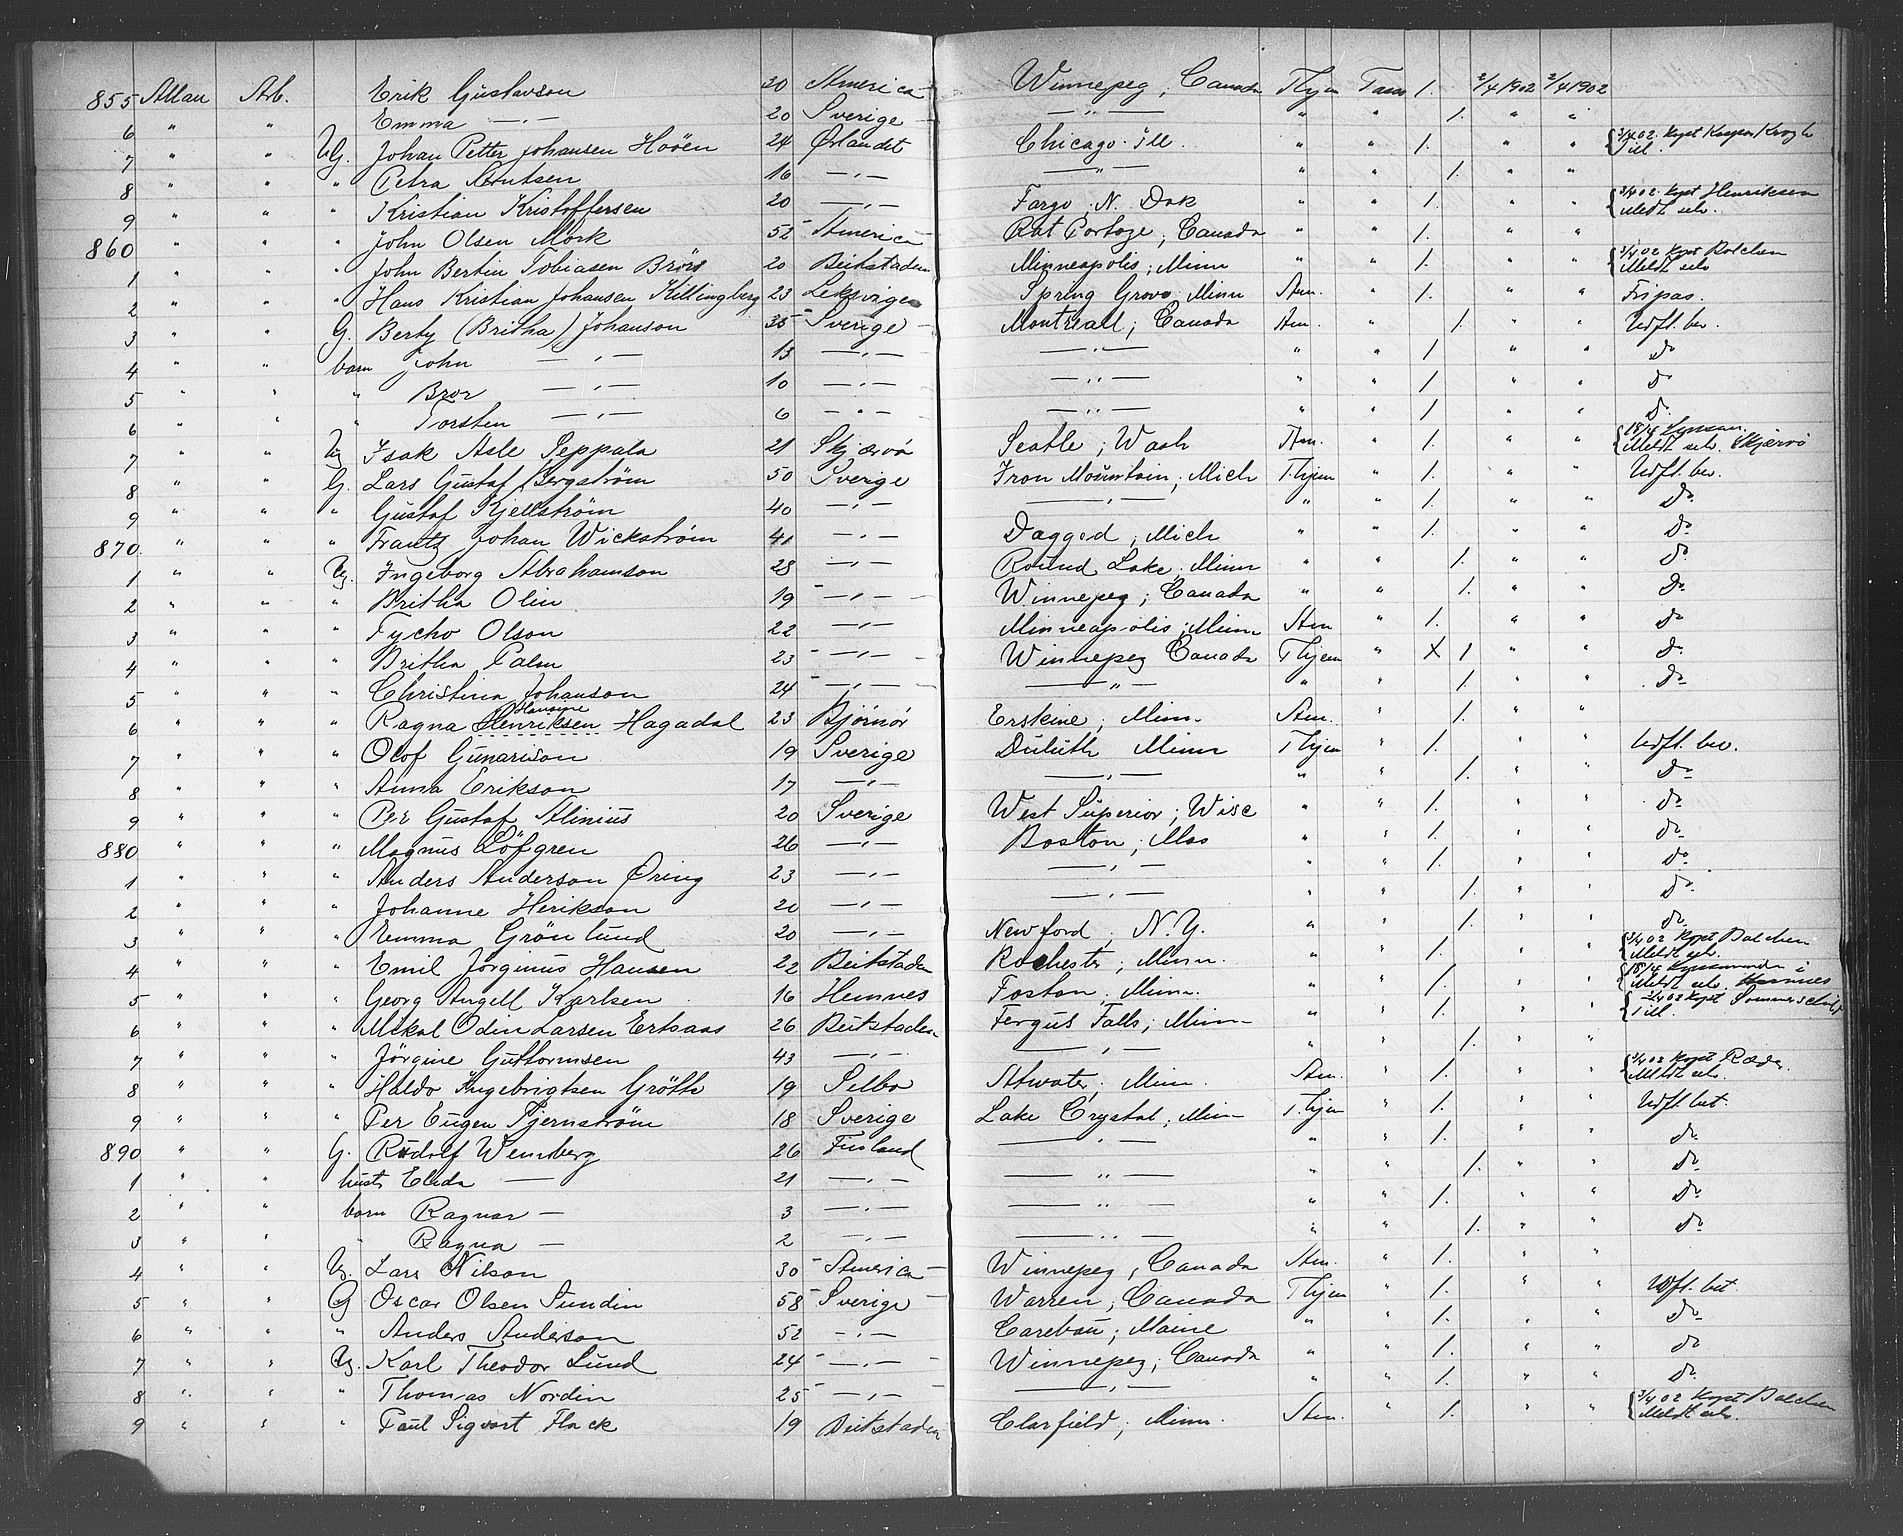 855 Allan Arb. Erik Gustavson 20 America Winnepeg, Canada Thjem Tass 1. 2/4 1902 2/4 1902
6 " " Emma —"— 20 Sverige —"— " " 1. " "
7 " " Ug. Johan Petter Johansen Hööen 24 Ørlandet Chicago Ill. " " 1. " " 3/4 02 Kopt Kasper Krogh Till.
8 " " " Petra Knutsen 16 —"— —"— " " 1. " "
9 " " " Kristian Kristoffersen 20 —"— Fargo, N. Dak " " 1. " " 3/4 02 Kopt Henriksen Meldt selv.
860 " " " John Olsen Mork 52 America Rat Portage, Canada " " 1. " "
1 " " " John Bertin Tobiasen Brörs 20 Beitstaden Minneapolis, Minn " " 1. " " 3/4 02 Kopt Balchen Meldt selv
2 " " " Hans Kristian Johansen Killingberg 23 Leksvigen Spring Grove, Minn Am. " 1. " " Fripas.
3 " " G. Berty (Britha) Johanson 35 Sverige Montreall, Canada Am. " 1. " " Udfl. bev.
4 " " barn John —"— 13 —"— —"— " " 1 " " do
5 " " " Bror —"— 10 —"— —"— " " 1 " " do
6 " " " Torsten —"— 6 —"— —"— " " 1 " " do
7 " " Ug Isak Asle Seppala 21 Skjærvö Seatle, Wash Am. " 1. " " 18/4 Meldt selv. Skjervö
8 " " G. Lars Gustaf Bergström 50 Sverige Iron Mountain, Mich Thjem " 1. " " Udfl. bev.
9 " " " Gustaf Kjellström 40 —"— —"— " " 1. " " do
870. " " " Frantz Johan Wickström 41 —"— Dagged, Mich " " 1. " " do
1 " " Ug. Ingeborg Abrahamson 28 —"— Round Lake, Minn " " 1. " " do
2 " " " Britha Olin 19 —"— Winnepeg, Canada " " 1. " " do
3 " " " Tycho Olson 22 —"— Minneapolis, Minn Am " 1. " " do
4 " " " Britha Palm 23 —"— Winnepeg Canada Thjem " X 1 " " do
5 " " " Christina Johanson 24 —"— —"— " " 1. " " do
6 " " " Ragna Henriksen Hagadal 23 Bjørnör Erskine, Minn. Am. " 1. " "
7 " " " Olof Gunarison 19 Sverige Duluth Minn Thjem " 1. " " Udfl. bev.
8 " " " Anna Erikson 17 —"— —"— " " 1. " " do
9 " " " Per Gustaf Alinius 20 Sverige West Superior, Wisc " " 1. " " do
880 " " " Magnus Löfgren 26 —"— Boston, Mas " " 1. " " do
1 " " " Anders Anderson Öring 23 —"— —"— " 1. " " do
2 " " " Johanne Herikson 20 —"— —"— " " 1. " " do
3 " " " Emma Grönlund 20 —"— Newford, N.Y. " " 1. " " do
4 " " " Emil Jörginus Hansen 22 Beitstaden Rochester, Minn. " " 1. " " 3/4 02 Kopt Balchen Meldt selv.
5 " " " Georg Angell Karlsen 16 Hemnes Foston, Minn. " " 1. " " 18/4 Meldt selv. Hemnes
6 " " " Mikal Odin Larsen Ertsaas 26 Beitstaden Fergus Falls, Minn " " 1. " " 3/4 02 Kopt Sommerschild Till.
7 " " " Jörgine Guttormsen 43 —"— —"— " " 1. " "
8 " " " Haldo Ingebrigtsen Grötte 19 Selbo Atwater, Minn. Am. " 1. " " 3/4 02 Kopt Meldt selv.
9 " " " Per Eugen Tjernström 18 Sverige Lake Crystal, Minn Thjem " 1. " " Udfl. bet.
890 " " G. Rudolf Wennberg 26 Finland —"— " " 1. " " do
1 " " hustr Elida — 21 —"— —"— " " 1. " " do
2 " " barn Ragnar — 3 —"— —"— " " 1. " " do
3 " " " Ragna — 2 —"— —"— " " 1. " " do
4 " " Ug. Lars Nilson 30 America Winnepeg, Canada Am. " 1. " "
5 " " G Oscar Olsen Sundin 58 Sverige Warren, Canada Thjem " 1. " " Udfl. bet.
6 " " " Anders Anderson 52 —"— Carebou, Maine " " 1. " " do
7 " " Ug. Karl Theodor Lund 24 —"— Winnepeg, Canada " " 1. " " do
8 " " " Thomas Nordin 25 —"— —"— " " 1. " " do
9 " " " Paul Sigvart Flack 19 Beitstaden Clarfield, Minn. Am. " 1. " " 3/4 02 Kopt Balchen Meldt selv.